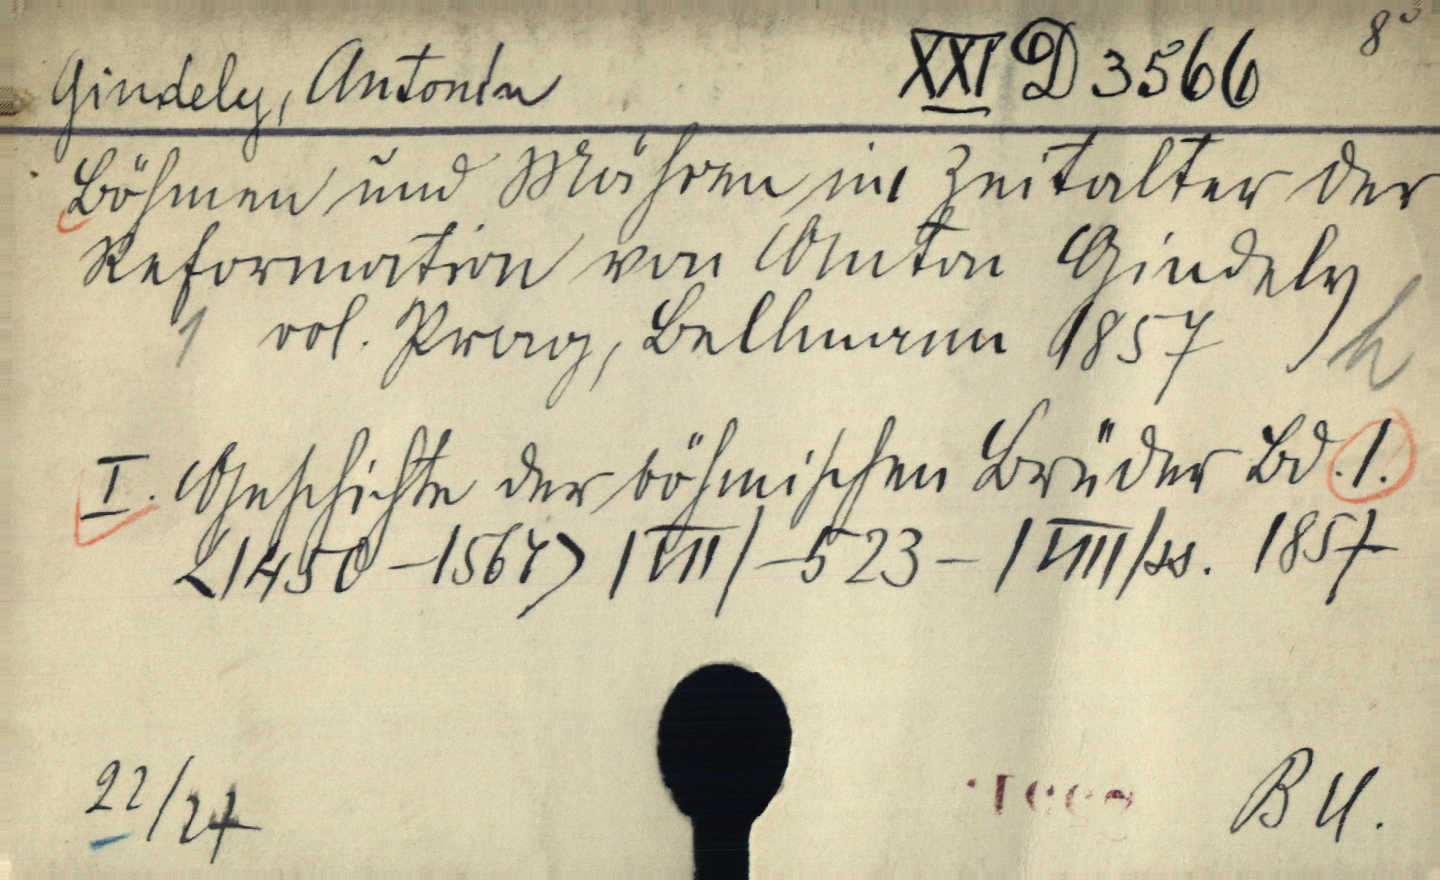 Gindely, Antonín XXI D 3566 8°
Böhmen und Mähren im Zeitalter der
Reformation von Anton Gindely
1 vol. Prag, Bellmann 1857
I. Geschichte der böhmischen Brüder Bd. 1.
<1450-1564> |VII|-523-|VIII|ss. 1857
22/27 B U.